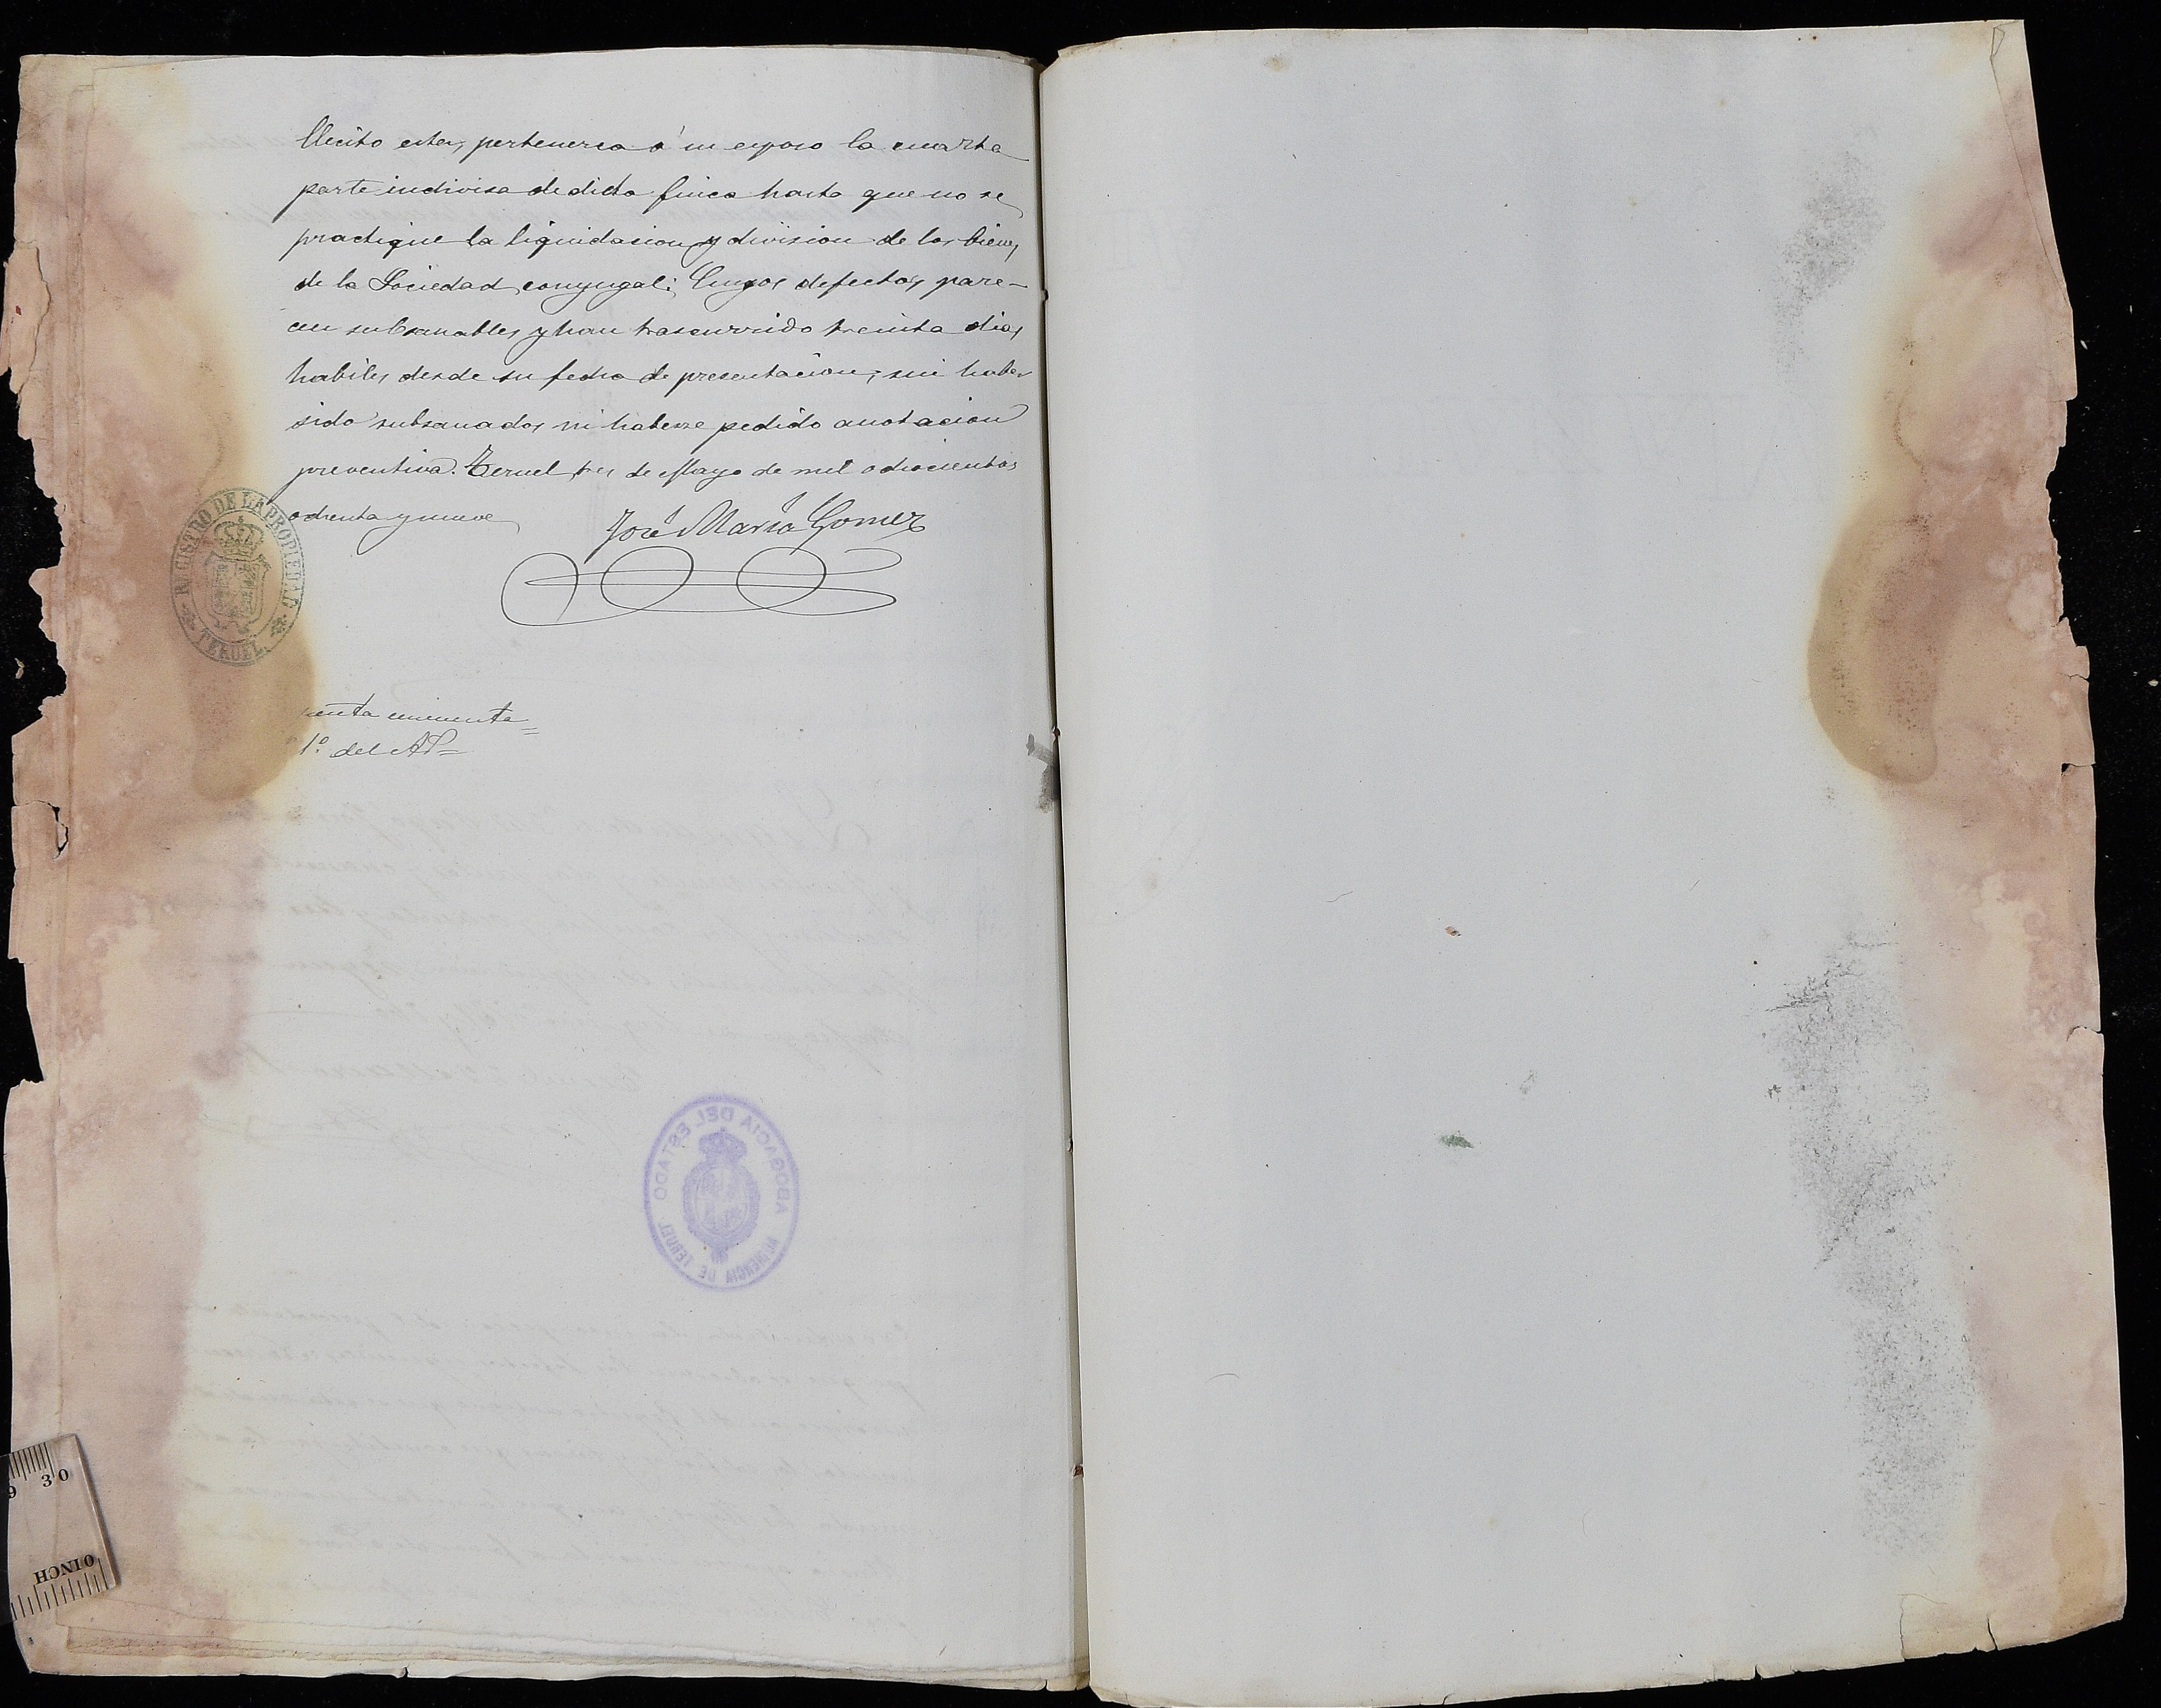 Mento este, pertenezca á su esposo la cuarta
parte indivisa de dicha finca hasta que no se
practique la liquidacion y division de los bienes
de la Sociedad conyugal: Cuyos defectos pare-
cen subsanables y han trascurrido treinta dias
habiles desde su fecha de presentacion, sin haber
sido subsanados ni haberse pedido anotacion
preventiva. Teruel, tres de Mayo de mil ochocientos
ochenta y nueve
José Maria Gomez
REGISTRO DE LA PROPIEDAD
TERUEL
cincuenta
1º del
ABOGACIA DEL ESTADO
DE TERUEL
30
9
0 INCH